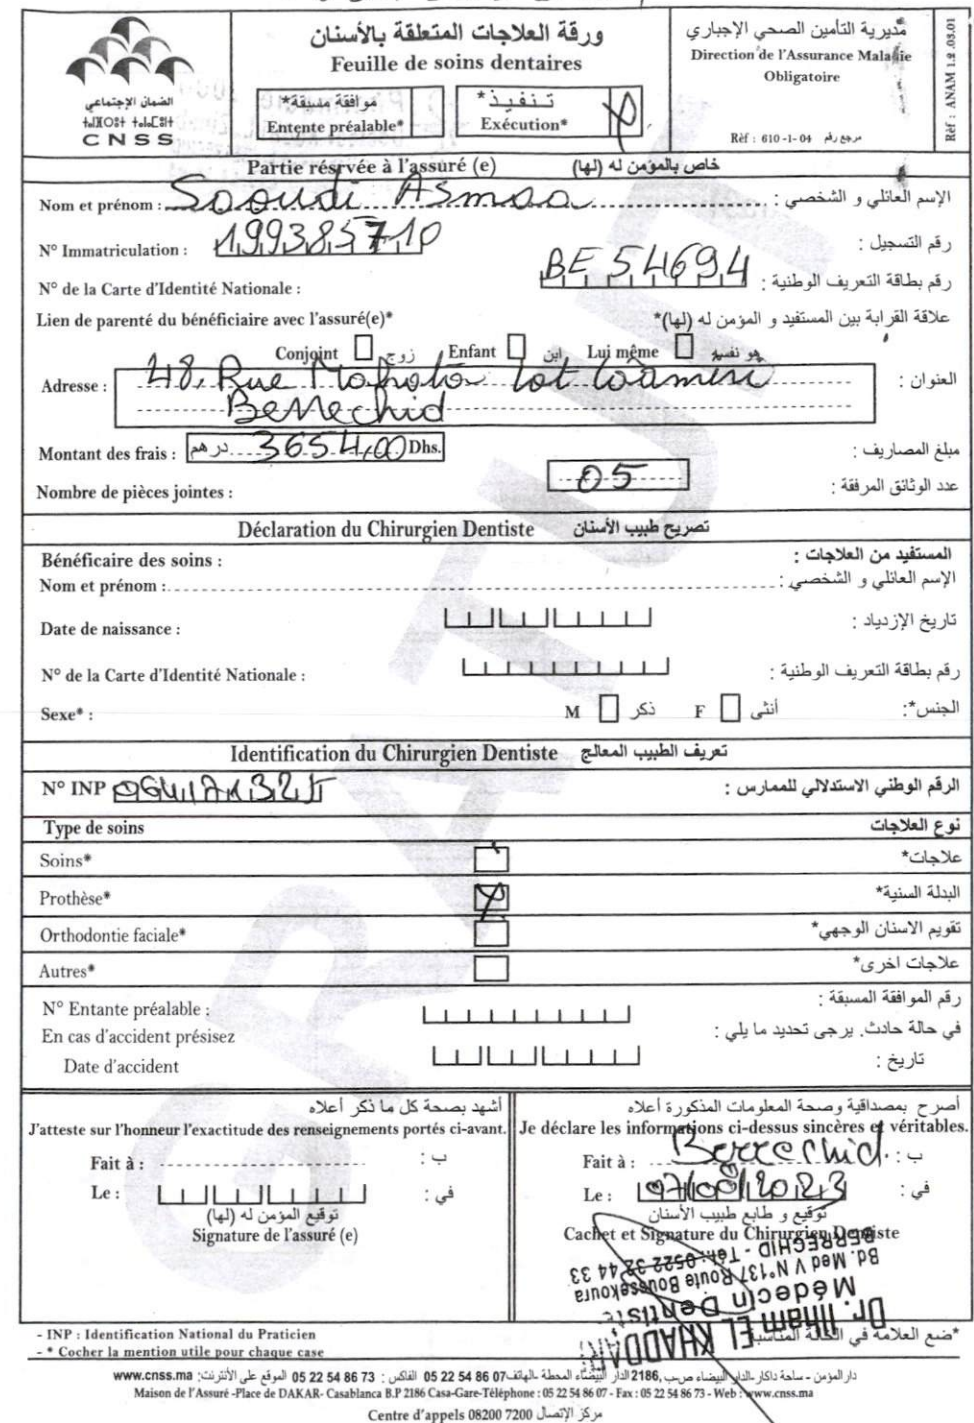 الضمان الإجتماعي
CNSS
ورقة العلاجات المتعلقة بالأسنان
Feuille de soins dentaires
موافقة مسبقة*
Entente préalable*
تنفيذ*
Exécution*
مديرية التأمين الصحي الإجباري
Direction de l'Assurance Maladie
Obligatoire
Rèf : 610-1-04 مرجع رقم
Rèf : ANAM 1.2 .03.01
Partie résrvée à l'assuré (e) خاص بالمؤمن له (لها)
Nom et prénom : Saoudi Asmaa الإسم العائلي و الشخصي :
N° Immatriculation : 199385710 رقم التسجيل :
N° de la Carte d'Identité Nationale : BE 54694 رقم بطاقة التعريف الوطنية :
Lien de parenté du bénéficiaire avec l'assuré(e)* علاقة القرابة بين المستفيد و المؤمن له (لها)*
Conjoint زوج Enfant ابن Lui même هو نفسه
Adresse : 48, Rue lot العنوان :
Berrechid
Montant des frais : درهم 3654,00 Dhs. مبلغ المصاريف :
Nombre de pièces jointes : 05 عدد الوثائق المرفقة :
Déclaration du Chirurgien Dentiste تصريح طبيب الأسنان
Bénéficaire des soins : المستفيد من العلاجات :
Nom et prénom : الإسم العائلي و الشخصي :
Date de naissance : تاريخ الإزدياد :
N° de la Carte d'Identité Nationale : رقم بطاقة التعريف الوطنية :
Sexe* : M ذكر F أنثى الجنس*:
Identification du Chirurgien Dentiste تعريف الطبيب المعالج
N° INP الرقم الوطني الاستدلالي للممارس :
Type de soins نوع العلاجات
Soins* علاجات*
Prothèse* البدلة السنية*
Orthodontie faciale* تقويم الاسنان الوجهي*
Autres* علاجات اخرى*
N° Entante préalable : رقم الموافقة المسبقة :
En cas d'accident présisez في حالة حادث. يرجى تحديد ما يلي :
Date d'accident تاريخ :
أشهد بصحة كل ما ذكر أعلاه
J'atteste sur l'honneur l'exactitude des renseignements portés ci-avant.
Fait à : ب :
Le : في :
توقيع المؤمن له (لها)
Signature de l'assuré (e)
أصرح بمصداقية وصحة المعلومات المذكورة أعلاه
Je déclare les informations ci-dessus sincères et véritables.
Fait à : Berrechid. ب :
Le : 07/08/2023 في :
توقيع و طابع طبيب الأسنان
Cachet et Signature du Chirurgien Dentiste
Dr. Ilham EL KHADDAR
Médecin Dentiste
Bd. Med V N°137 Route Boussekoura
BERRECHID - Tél.: 0522 32 44 33
- INP : Identification National du Praticien
- * Cocher la mention utile pour chaque case
*ضع العلامة في الخانة المناسبة
دار المؤمن - ساحة داكار-الدار البيضاء ص.ب 2186, الدار البيضاء المحطة -الهاتف 05 22 54 86 07 الفاكس : 05 22 54 86 73 الموقع على الأنترنت: www.cnss.ma
Maison de l'Assuré -Place de DAKAR- Casablanca B.P 2186 Casa-Gare-Téléphone : 05 22 54 86 07 - Fax : 05 22 54 86 73 - Web : www.cnss.ma
Centre d'appels 08200 7200 مركز الإتصال
GRATUIT